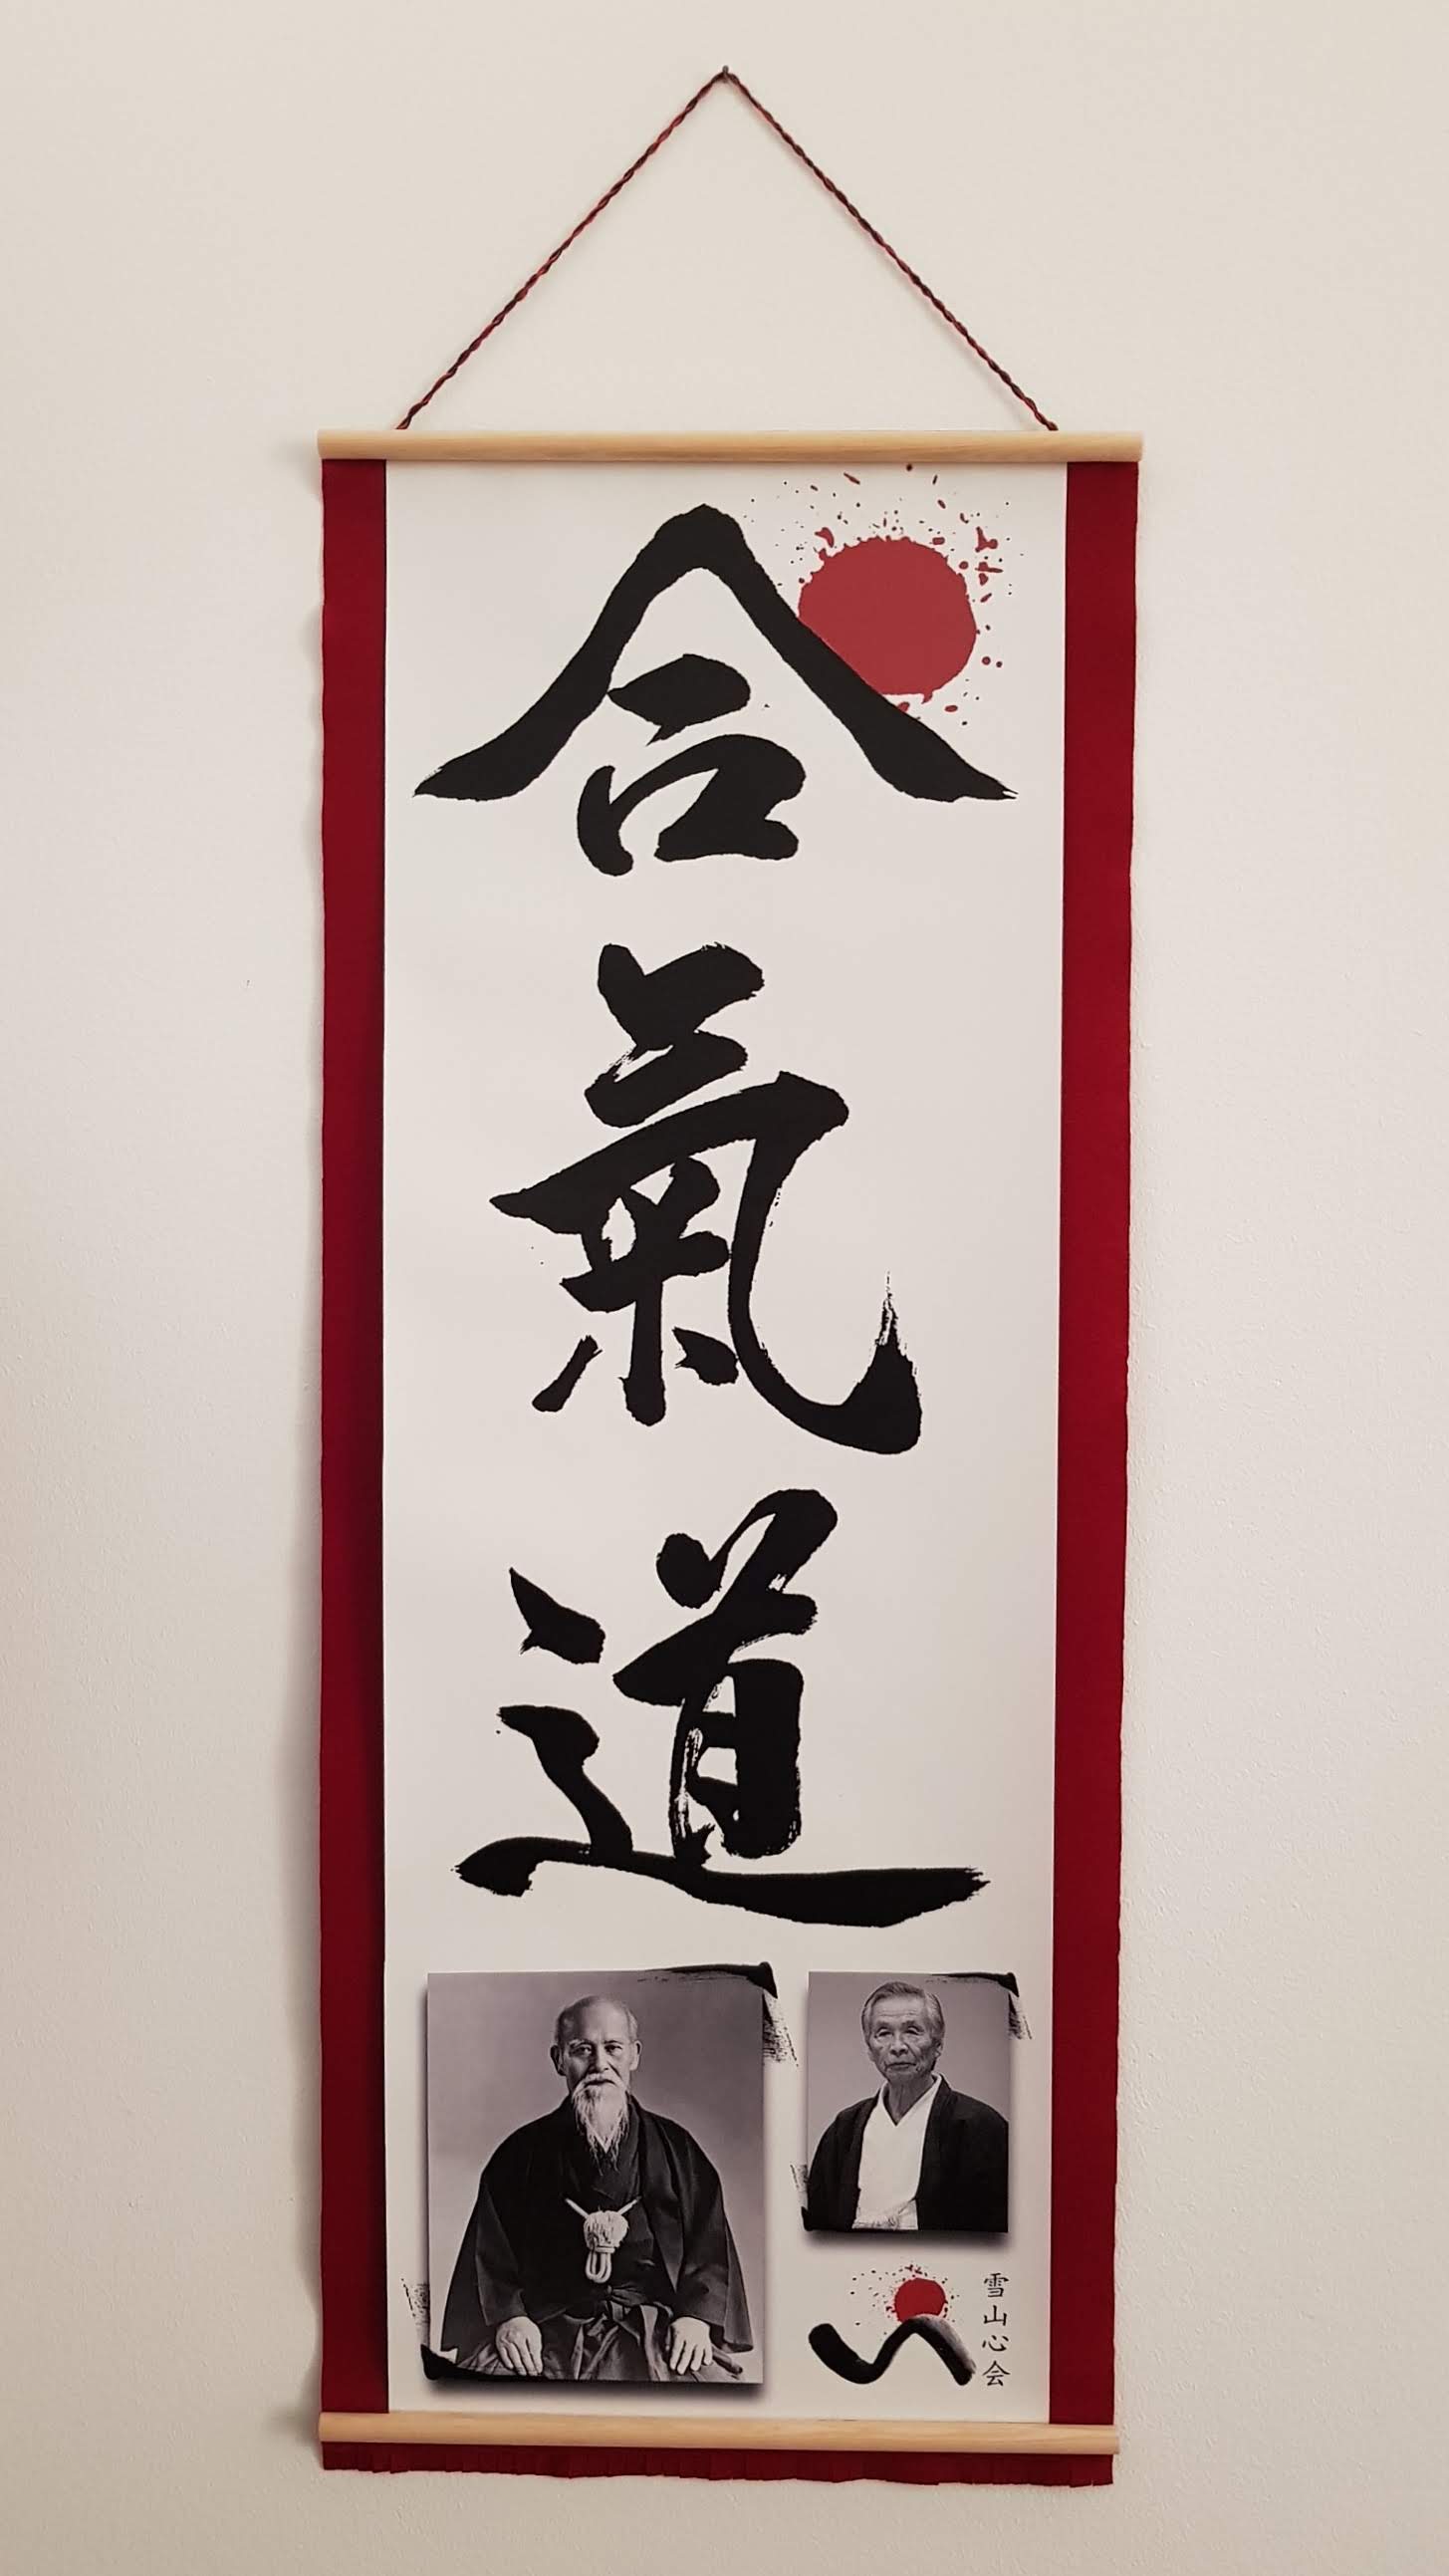 合氣道
雪山心会